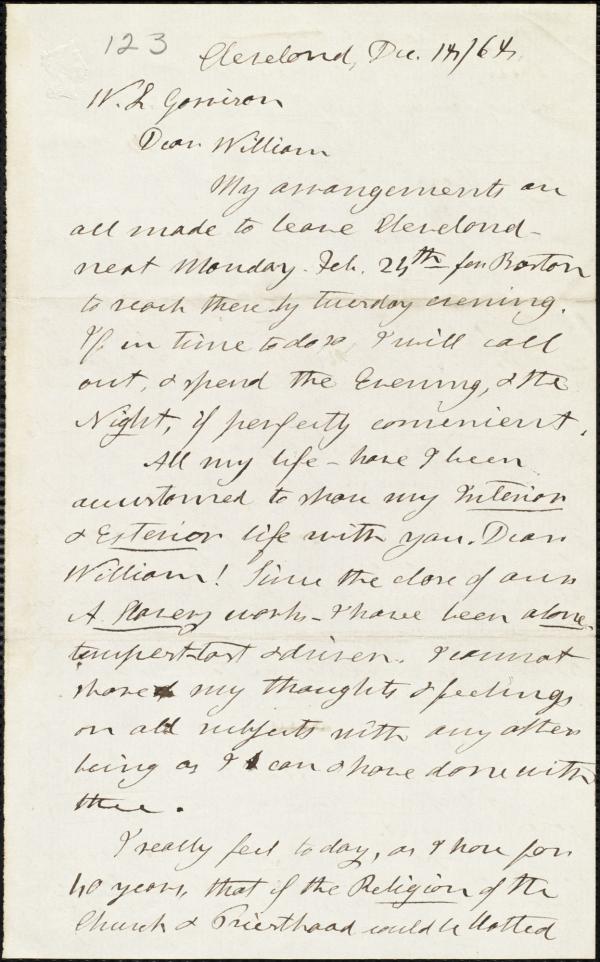 123
Cleveland, Dec. 14/64.
W. L. Garrison
Dear William
My arrangements are
all made to leave Cleveland-
next Monday. Feb. 24th for Boston
to reach there by tuesday evening.
If in time to do so, I will call
out, & spend the Evening, & the
Night, if perfectly convenient.
All my life - have I been
accustomed to share my Interior
& Exterior life with you. Dear
William! Since the close of our
A. Slavery works - I have been alone,
tempest-tost & driven. I cannot
share my thoughts & feelings
on all subjects with any other
being as I can & have done with
thee.
I really feel to day, as I have for
40 years, that if the Religion of the
Church & Priesthood could be blotted